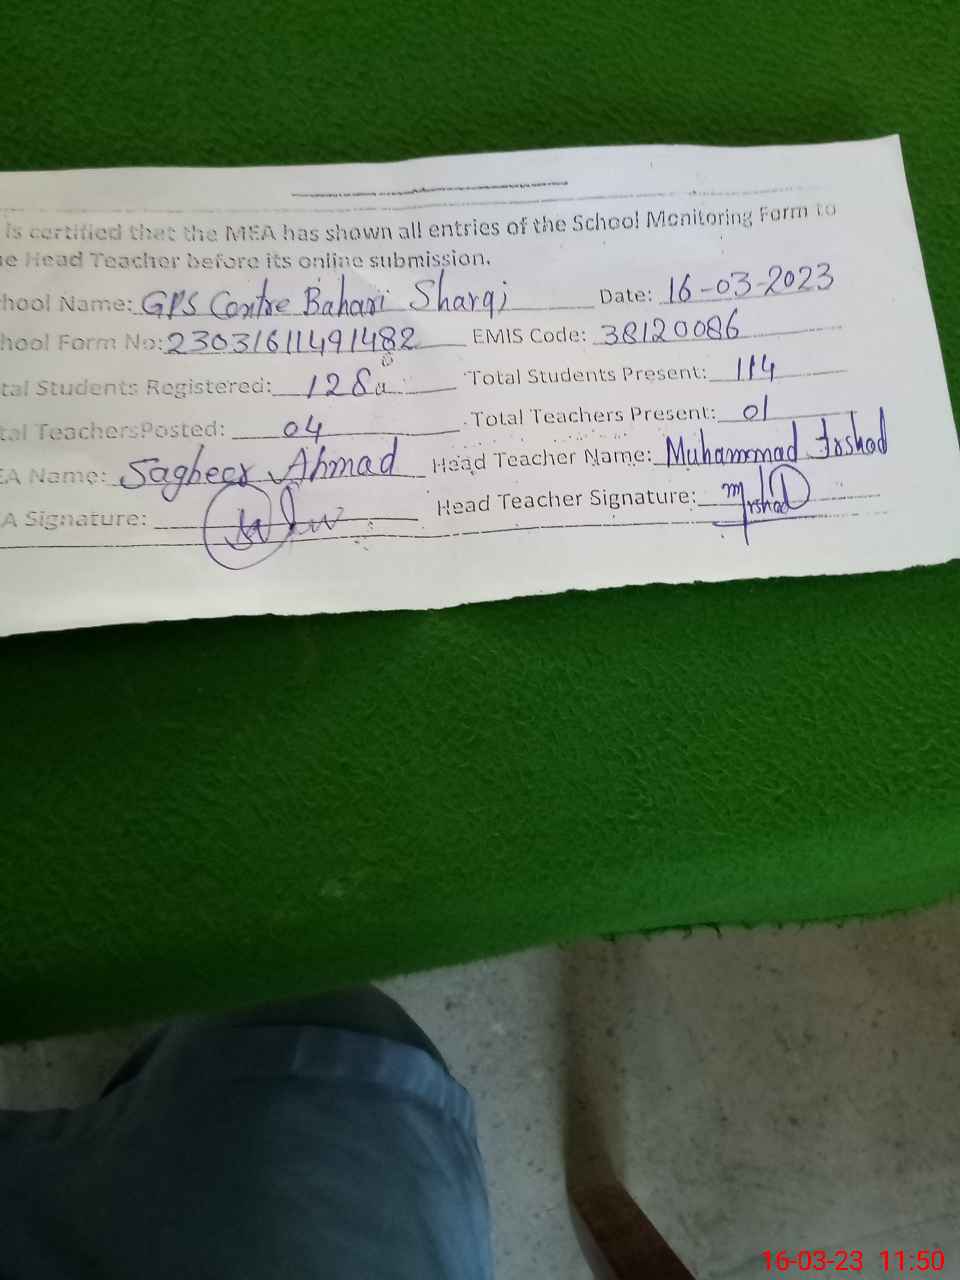 is certified that the MEA has shown all entries of the School Monitoring Form to
e Head Teacher before its online submission.
hool Name: GPS Centre Bahari Sharqi Date: 16-03-2023
hool Form No: 23031611491482 EMIS Code: 38120086
tal Students Registered: 128 Total Students Present: 114
tal TeachersPosted: 04 Total Teachers Present: 01
EA Name: Sagheer Ahmad Head Teacher Name: Muhammad Irshad
A Signature: Head Teacher Signature: M Irshad
16-03-23 11:50